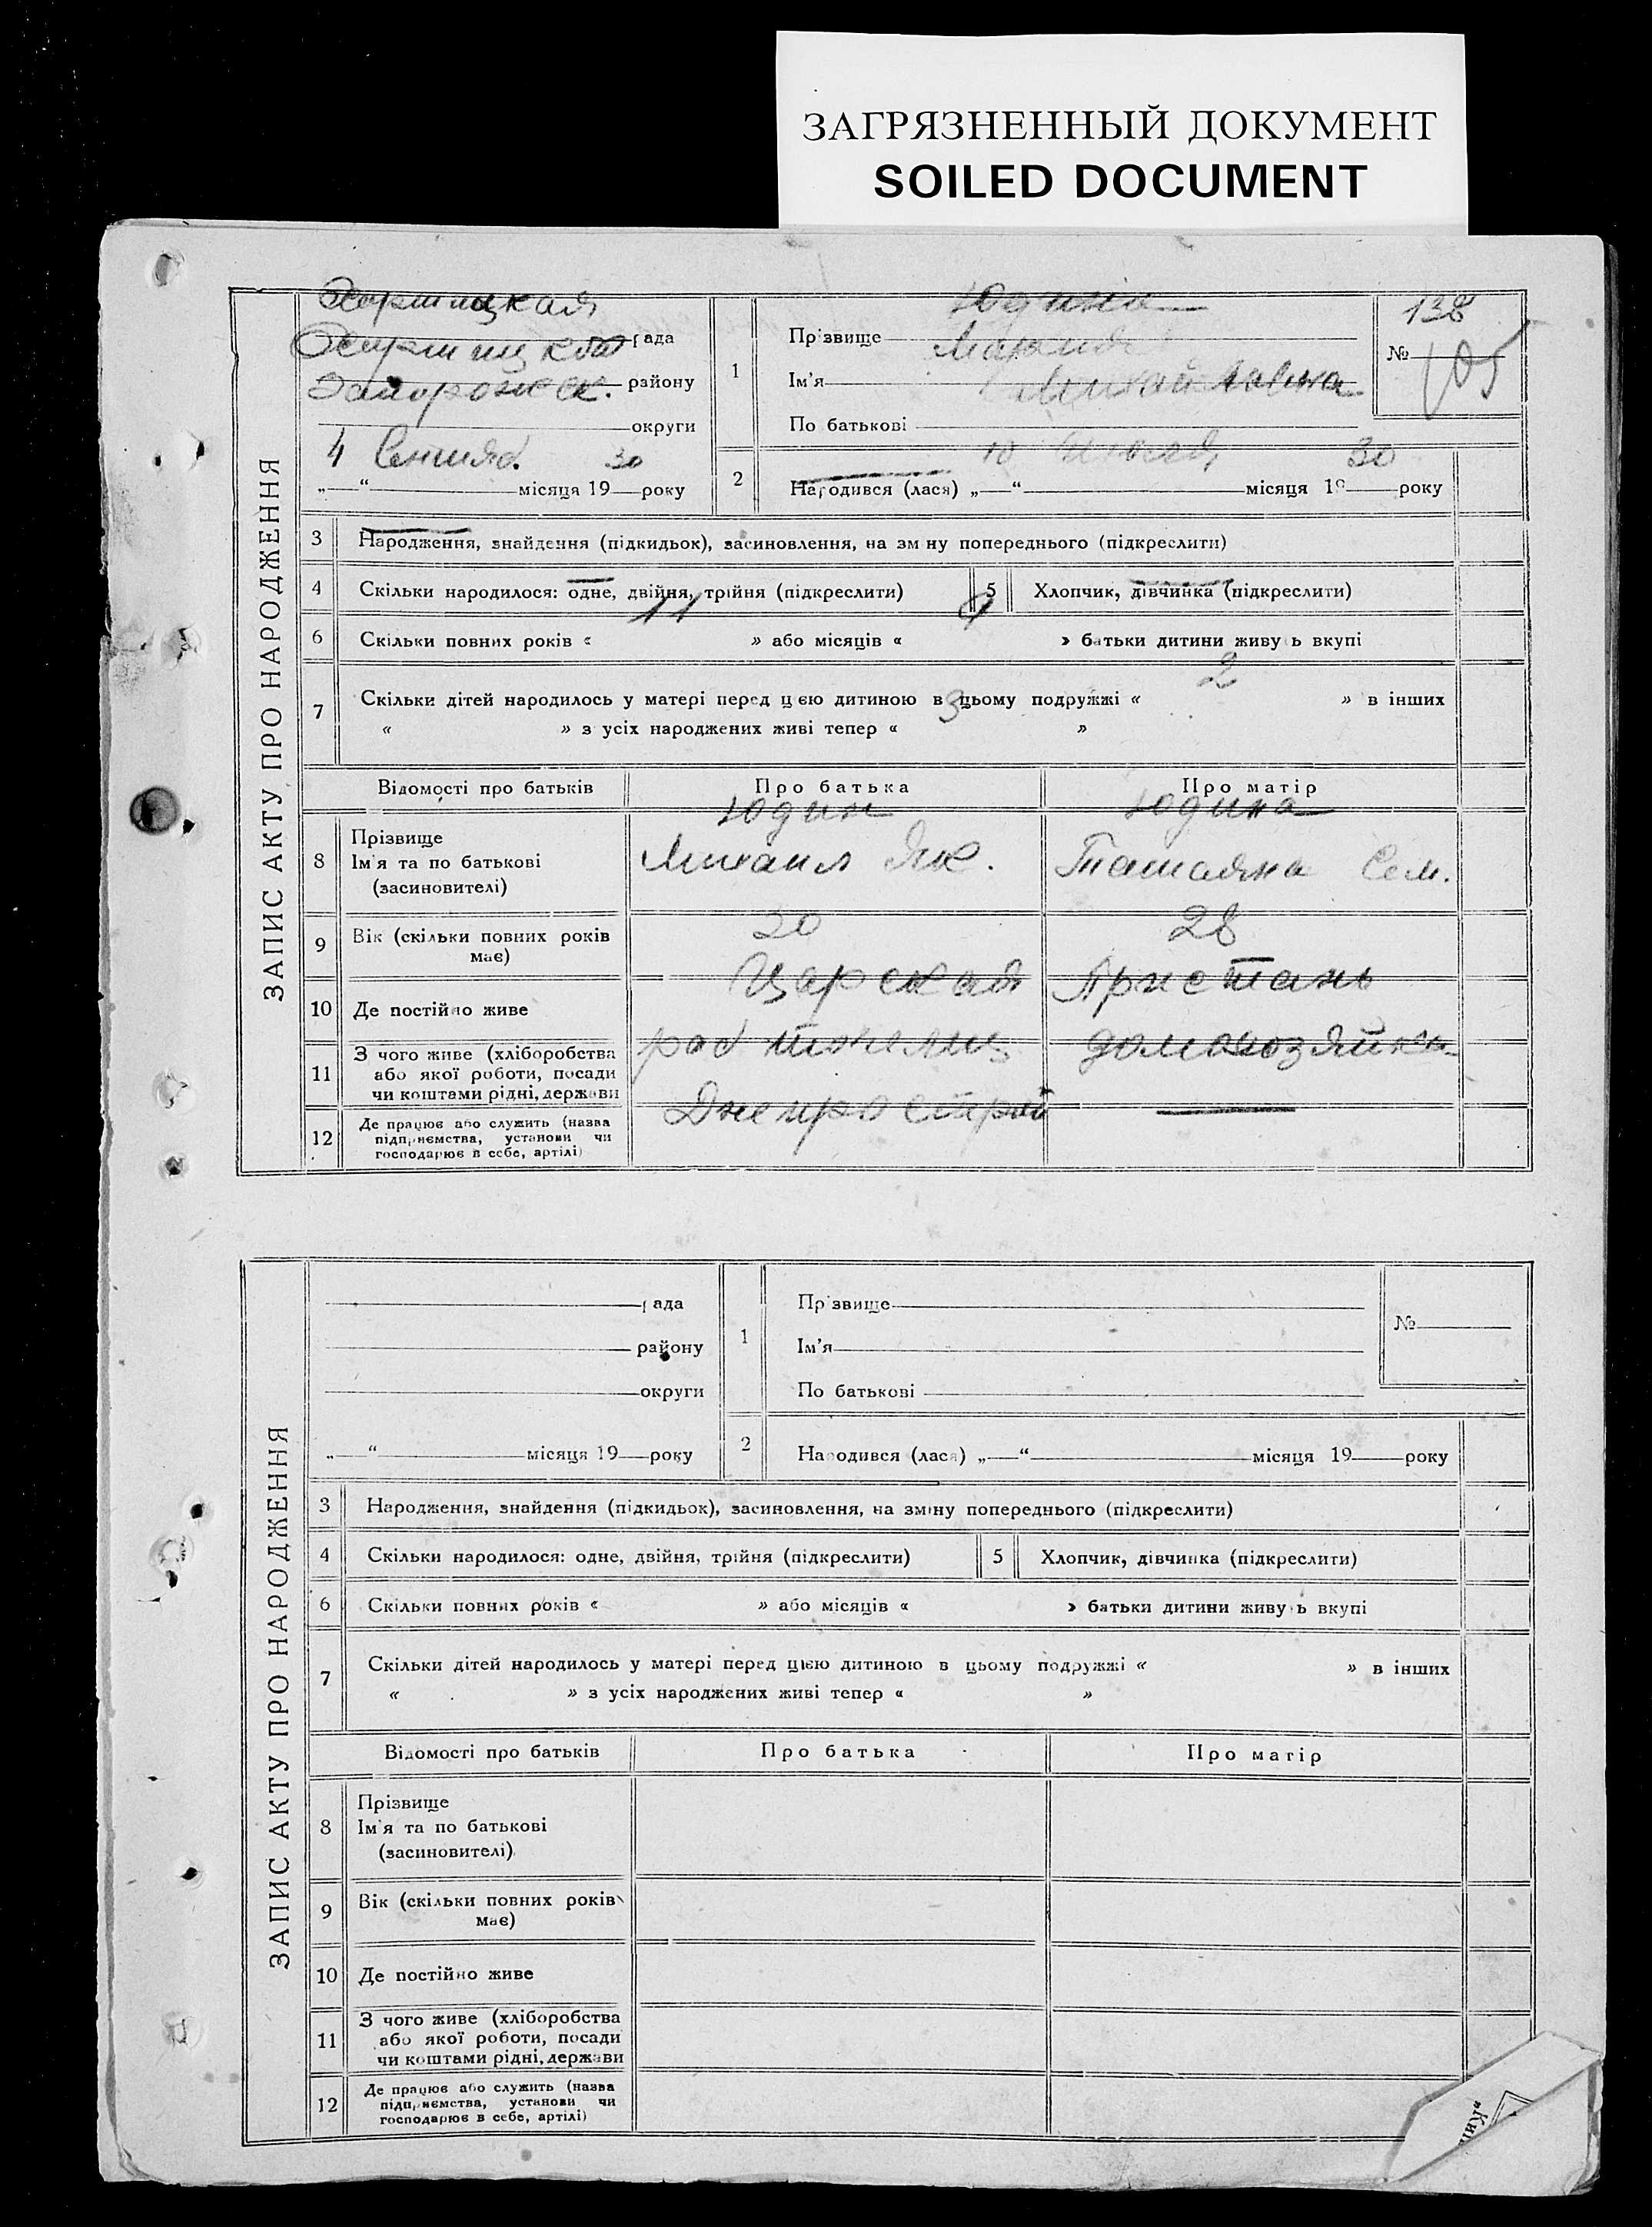 ЗАГРЯЗНЕННЫЙ ДОКУМЕНТ
SOILED DOCUMENT
ЗАПИС АКТУ ПРО НАРОДЖЕННЯ
Хортицкая
рада
района
Запорожск. району
округи
4 Сентяб. 30
„ “ місяця 19 року
1
Прізвище
Ім'я
Михайловна
По батькові
138
№ 105
2
10 Июля 30
Народився (лася) „ “ місяця 19 року
3 Народження, знайдення (підкидьок), засиновлення, на зміну попереднього (підкреслити)
4 Скільки народилося: одне, двійня, трійня (підкреслити)
5 Хлопчик, дівчинка (підкреслити)
6 Скільки повних років « 11 » або місяців « » батьки дитини живуть вкупі
7 Скільки дітей народилось у матері перед цією дитиною в цьому подружжі « 2 » в інших
« » з усіх народжених живі тепер « 3 »
Відомості про батьків Про батька Про матір
8 Прізвище
Ім'я та по батькові
(засиновителі)
Юдин
Михаил Як.
Юдина
Татьяна Сем.
9 Вік (скільки повних років
має)
30
28
10 Де постійно живе
Царская Пристань
11 З чого живе (хліборобства
або якої роботи, посади
чи коштами рідні, держави
раб
домохозяйка
12 Де працює або служить (назва
підприємства, установи чи
господарює в себе, артілі)
Днепрострой
ЗАПИС АКТУ ПРО НАРОДЖЕННЯ
рада
району
округи
„ “ місяця 19 року
1
Прізвище
Ім'я
По батькові
№
2 Народився (лася) „ “ місяця 19 року
3 Народження, знайдення (підкидьок), засиновлення, на зміну попереднього (підкреслити)
4 Скільки народилося: одне, двійня, трійня (підкреслити)
5 Хлопчик, дівчинка (підкреслити)
6 Скільки повних років « » або місяців « » батьки дитини живуть вкупі
7 Скільки дітей народилось у матері перед цією дитиною в цьому подружжі « » в інших
« » з усіх народжених живі тепер « »
Відомості про батьків Про батька Про матір
8 Прізвище
Ім'я та по батькові
(засиновителі)
9 Вік (скільки повних років
має)
10 Де постійно живе
11 З чого живе (хліборобства
або якої роботи, посади
чи коштами рідні, держави
12 Де працює або служить (назва
підприємства, установи чи
господарює в себе, артілі)